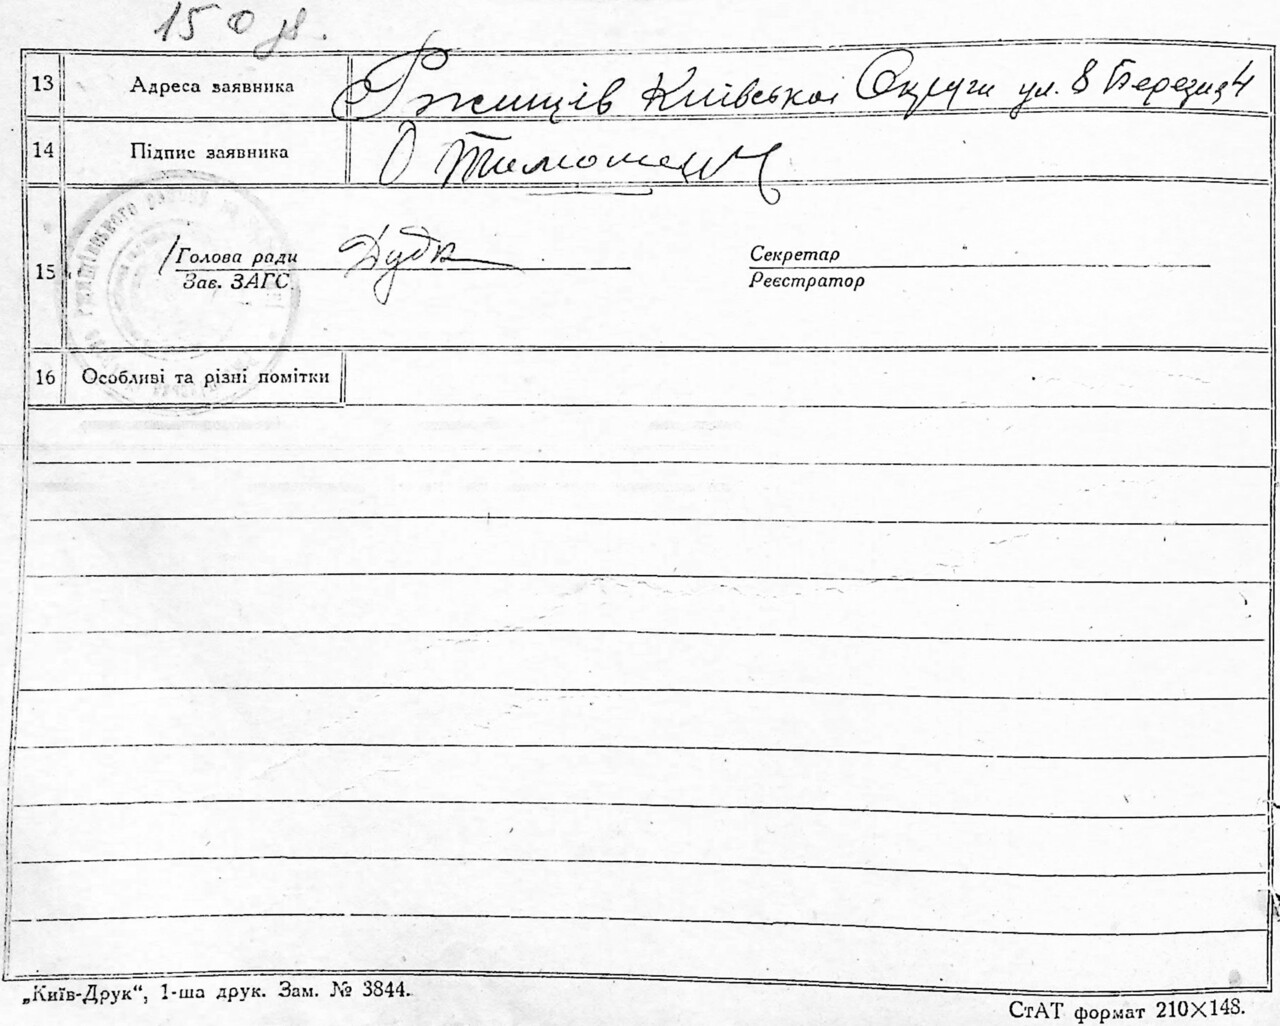 150 р.
13 Адреса заявника Ржищів Київської Округи ул. 8 Березня 4
14 Підпис заявника О Тимошенк
15 Голова ради Дудк Секретар
Зав. ЗАГС. Реєстратор
16 Особливі та різні помітки
„Київ-Друк“, 1-ша друк. Зам. № 3844.
СтАТ формат 210×148.